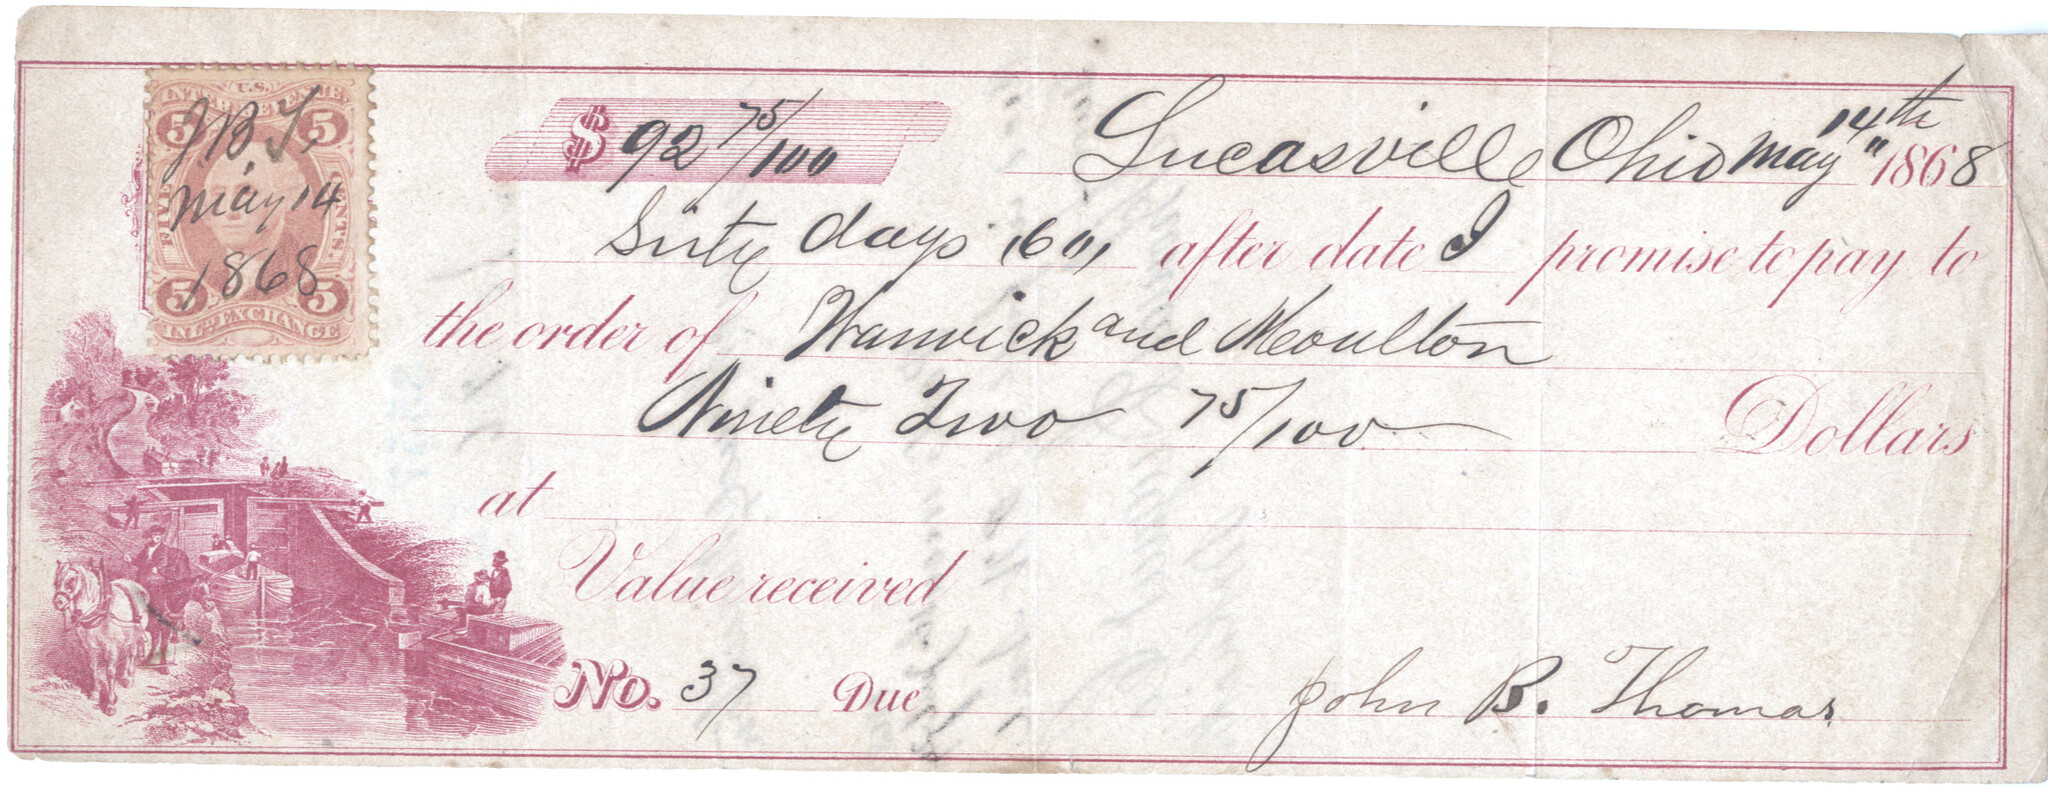 U.S.
INTER. REVENUE
5 5
FIVE CENTS.
5 5
INL. EXCHANGE
J. B. T.
May 14
1868
$ 92 75/100
Lucasville Ohio May 14th " 1868
Sixty days (60) after date I promise to pay to
the order of Warwick and Moulton
Ninety Two 75/100 Dollars
at
Value received
No. 37 Due
John B. Thomas